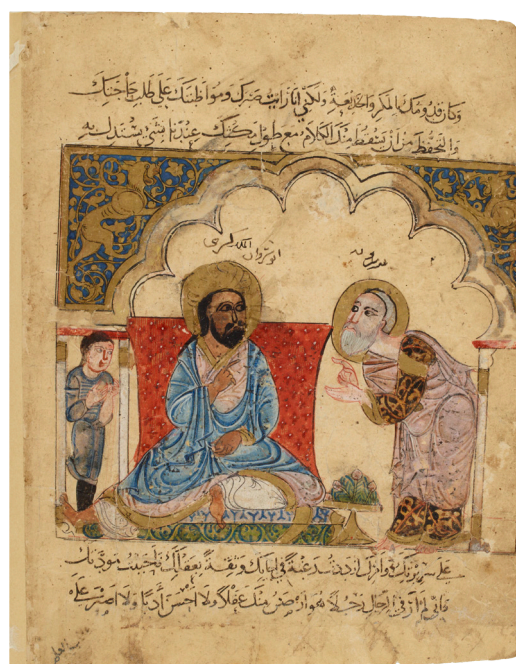 وكان قدومك بالمكر والخديعة ولكني لما رايت صبرك ومواظبتك على طلب حاجتك
والتحفظ من ان تسقط منك الكلام مع طول مكثك عندنا بشي يستدل به
انوشروان الملك كسرى
على سريرتك وامرك ازددت رغبة في اخايك وثقة بعقلك فاحببت مودتك
فاني لم ار في الرجال رجلا هو ارصن منك عقلا ولا احسن ادبا ولا اصبر على